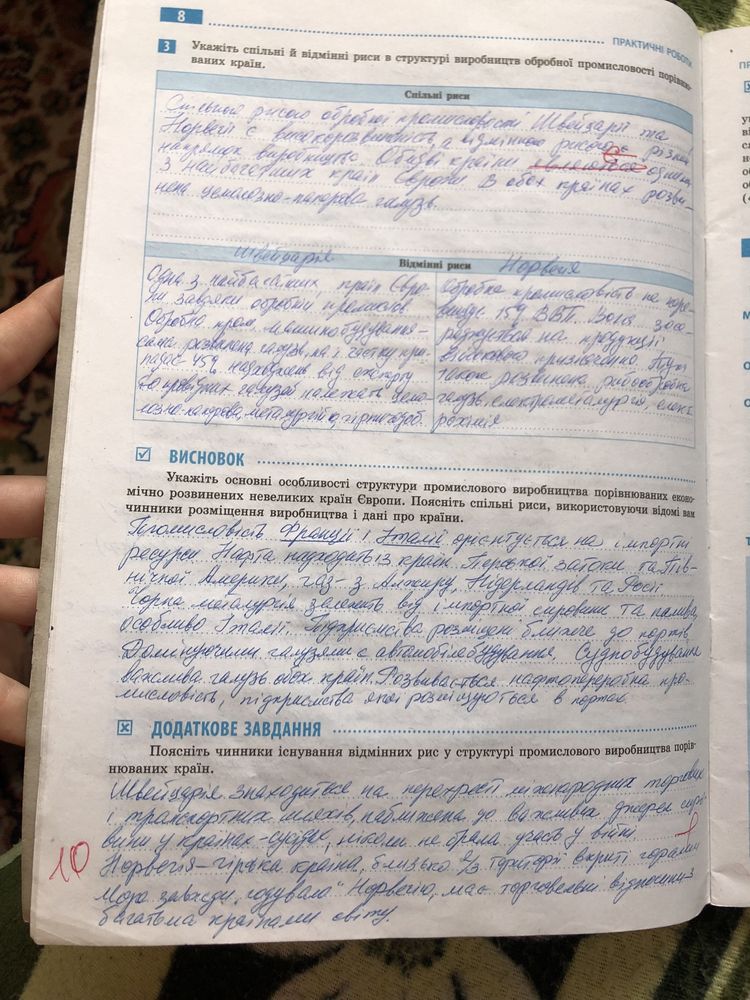 8
ПРАКТИЧНІ РОБОТИ
3 Укажіть спільні й відмінні риси в структурі виробництв обробної промисловості порівню-
ваних країн.
Спільні риси
Спільною рисою обробної промисловості Швейцарії та
Норвегії є високорозвиненість, а відмінною рисою є різний
напрямок виробництв. Обидві країни являються одними
з найбагатших країн Європи. В обох країнах розви-
нена целюлозно-паперова галузь.
Швейцарія
Відмінні риси
Норвегія
Одна з найбагатших країн Євро-
пи завдяки обробній промислов.
Обробна пром. машинобудування-
сама розвинена галузь, на її частку при-
падає 45% надходжень від експорту
До провідних галузей належать целю-
лозно-паперова, металургійна, гірничозоб.
Обробна промисловість не пере-
вищує 15% ВВП. Вона
на продукції
військового призначення.
також розвинена рибообробна
галузь, електрометалургія, елект
рохімія
ВИСНОВОК
Укажіть основні особливості структури промислового виробництва порівнюваних еконо-
мічно розвинених невеликих країн Європи. Поясніть спільні риси, використовуючи відомі вам
чинники розміщення виробництва і дані про країни.
Промисловість Франції і Італії орієнтується на імпортні
ресурси. Нафта надходить із країн Перської затоки та Пів-
нічної Америки, газ - з Алжиру, Нідерландів та Росії.
Чорна металургія залежить від імпортної сировини та палива,
особливо Італії. Підприємства розміщені ближче до портів.
Домінуючими галузями є автомобілебудування. Суднобудування
важлива галузь обох країн. Розвивається нафтопереробна про-
мисловість, підприємства якої розміщуються в портах.
ДОДАТКОВЕ ЗАВДАННЯ
Поясніть чинники існування відмінних рис у структурі промислового виробництва порів-
нюваних країн.
Швейцарія знаходиться на перехресті міжнародних торгових
і транспортних шляхів, наближена до важливих джерел сиро-
вини у країнах-сусідах, ніколи не брала участь у війні.
10
Норвегія - гірська країна, близько 2/3 території вкриті горами
Море завжди "годувало" Норвегію, має торговельні відносини з
багатьма країнами світу.